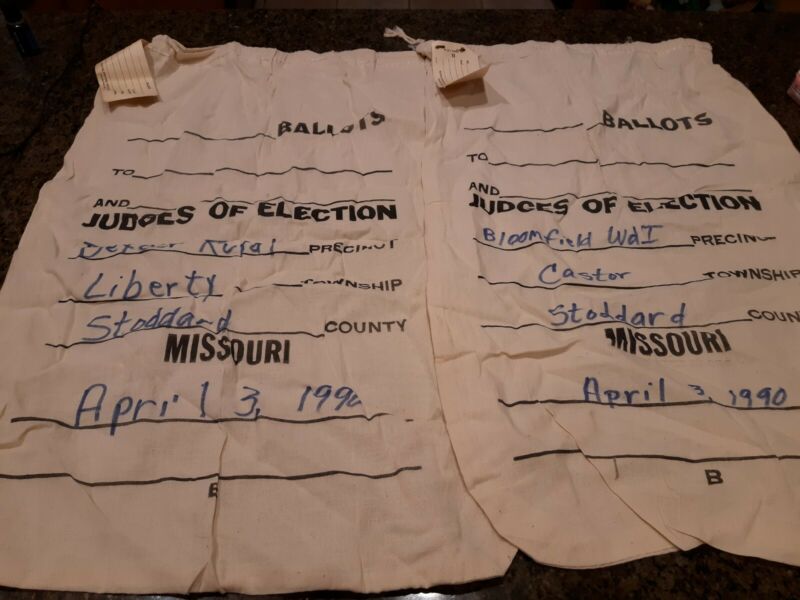 BALLOTS
TO
AND
JUDGES OF ELECTION
Dexter Rural PRECINCT
Liberty TOWNSHIP
Stoddard COUNTY
MISSOURI
April 3, 1990
B
BALLOTS
TO
AND
JUDGES OF ELECTION
Bloomfield Wd I PRECINCT
Castor TOWNSHIP
Stoddard COUN
MISSOURI
April 3, 1990
B